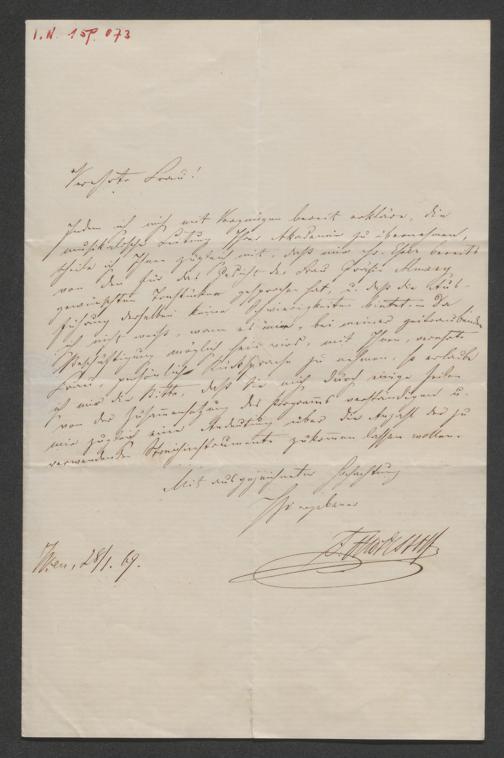 I.N. 159.073
Verehrte Frau!
Indem ich mich mit Vergnügen bereit erkläre, die
musikalische Leitung Ihrer Akademie zu übernehmen,
theile ich Ihnen zugleich mit, daß mir H. bereits
von den für das Gedicht des Gräfin
gewünschten Tonstücken gesprochen hat, u. daß die Auf-
führung derselben keine Schwierigkeiten bietet. – Da
ich nicht weiß, wann es mir, bei meiner zeitraubenden
Beschäftigung möglich sein wird, mit Ihnen, verehrte
Frau, persönlich Rücksprache zu nehmen, so erlaube
ich mir die Bitte, daß Sie mich durch einige Zeilen
von der Zusammensetzung des Programms verständigen u.
mir zugleich eine Andeutung über die Anzahl der zu
verwendenden Streichinstrumente zukommen lassen wollen.
Mit ausgezeichneter Hochachtung
Ihr ergebener
Wien, 28/1. 69.